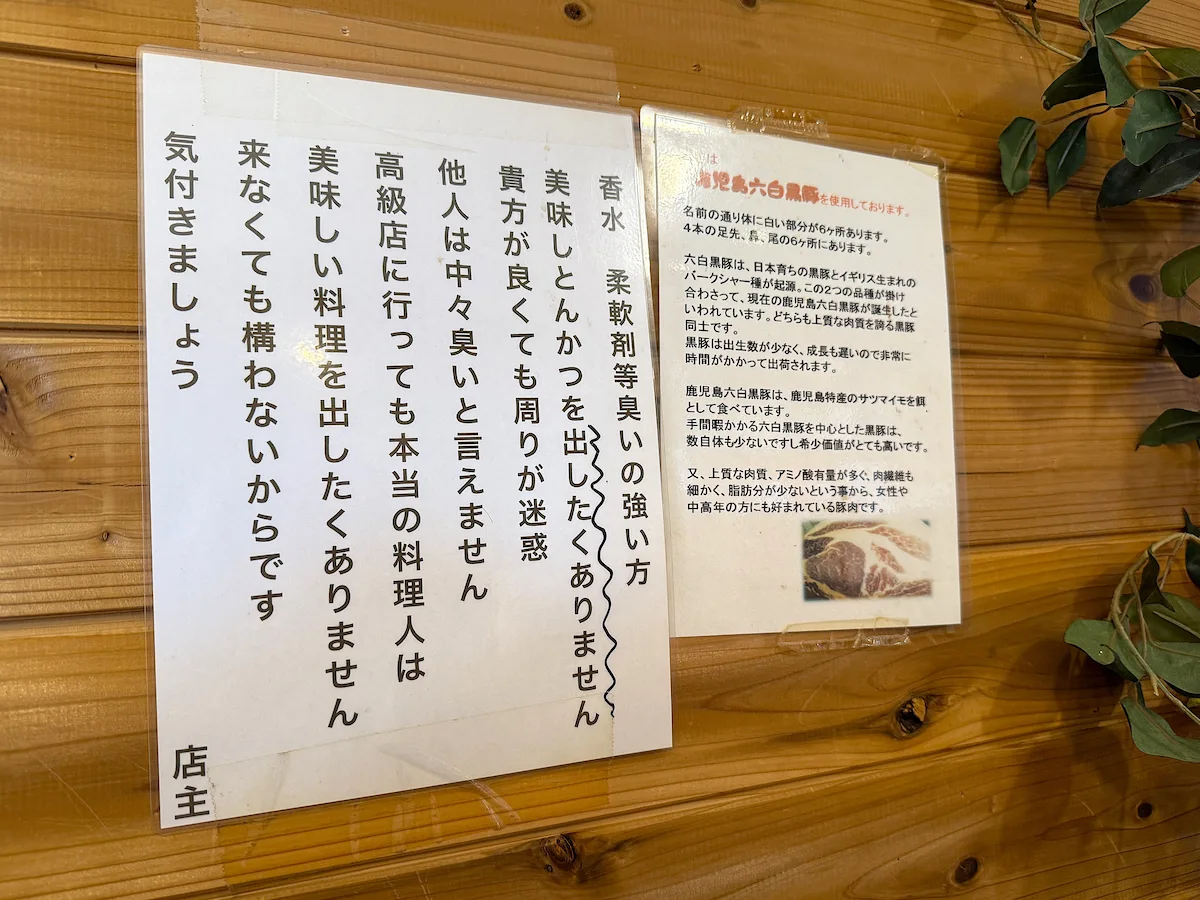 香水 柔軟剤等臭いの強い方
美味しとんかつを出したくありません
貴方が良くても周りが迷惑
他人は中々臭いと言えません
高級店に行っても本当の料理人は
美味しい料理を出したくありません
来なくても構わないからです
気付きましょう
店主
は
児島六白黒豚を使用しております。
名前の通り体に白い部分が6ヶ所あります。
4本の足先、鼻、尾の6ヶ所にあります。
六白黒豚は、日本育ちの黒豚とイギリス生まれの
バークシャー種が起源。この2つの品種が掛け
合わさって、現在の鹿児島六白黒豚が誕生したと
いわれています。どちらも上質な肉質を誇る黒豚
同士です。
黒豚は出生数が少なく、成長も遅いので非常に
時間がかかって出荷されます。
鹿児島六白黒豚は、鹿児島特産のサツマイモを餌
として食べています。
手間暇かかる六白黒豚を中心とした黒豚は、
数自体も少ないですし希少価値がとても高いです。
又、上質な肉質、アミノ酸有量が多ぐ、肉繊維も
細かく、脂肪分が少ないという事から、女性や
中高年の方にも好まれている豚肉です。